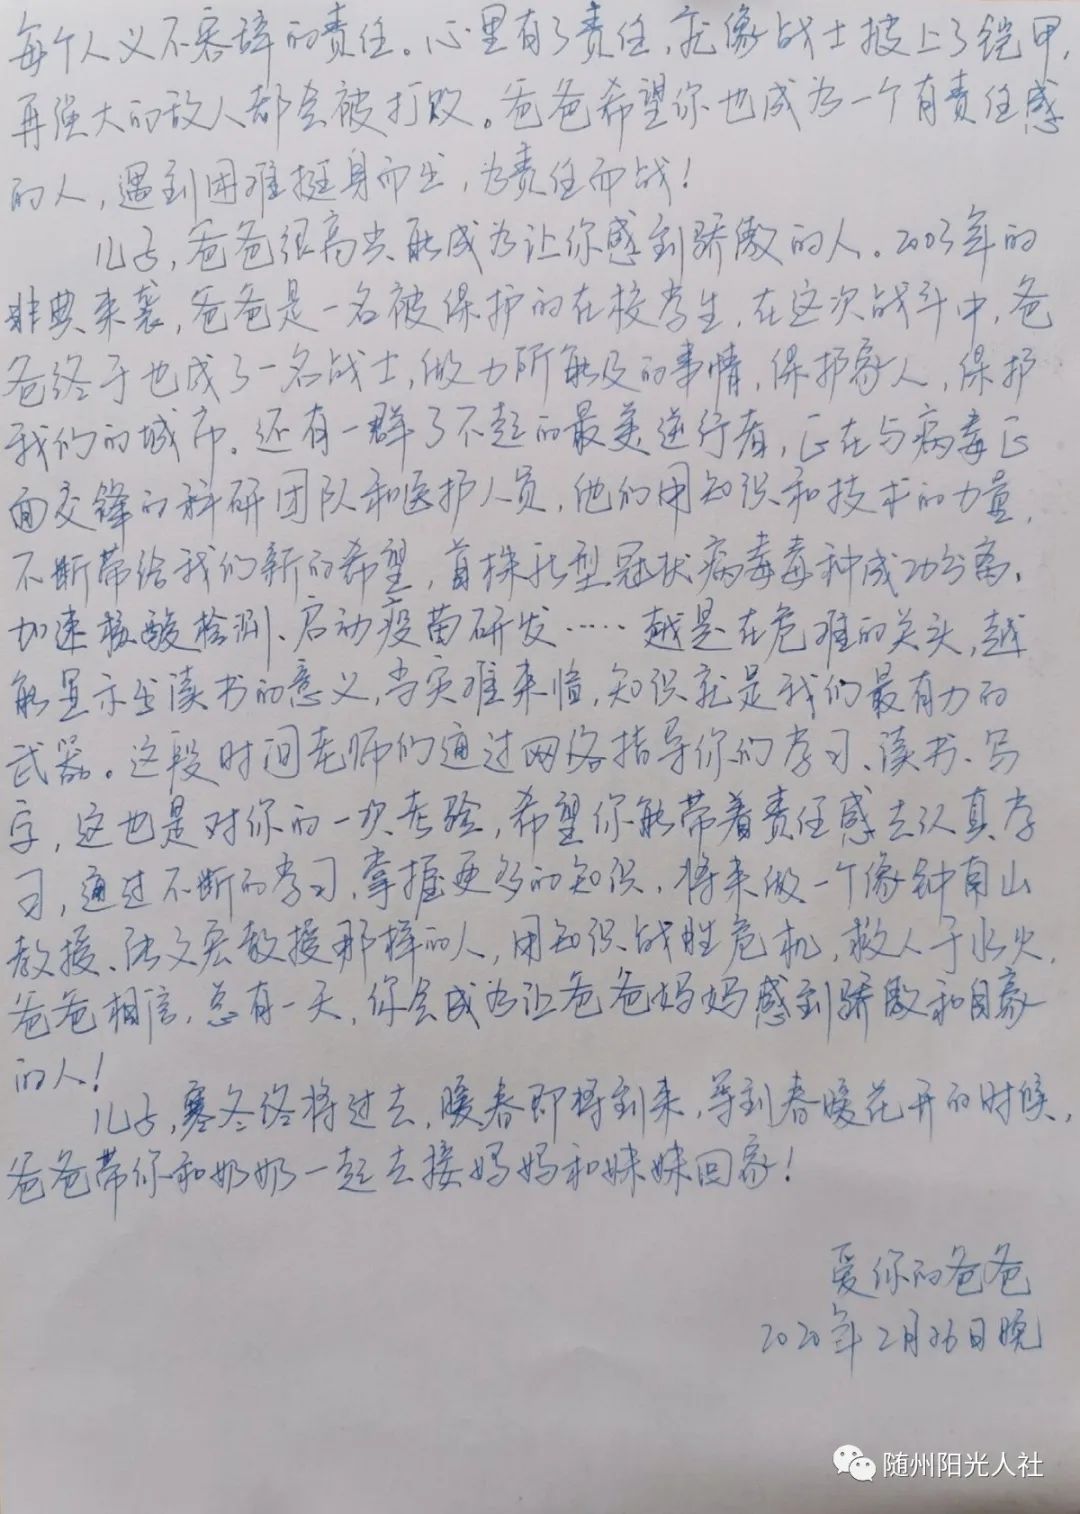 每个人义不容辞的责任。心里有了责任,就像战士披上了铠甲,
再强大的敌人都会被打败。爸爸希望你也成为一个有责任感
的人,遇到困难挺身而出,为责任而战!
儿子,爸爸很高兴能成为让你感到骄傲的人。2003年的
非典来袭,爸爸是一名被保护的在校学生,在这次战斗中,爸
爸终于也成了一名战士,做力所能及的事情,保护家人,保护
我们的城市。还有一群了不起的最美逆行者,正在与病毒正
面交锋的科研团队和医护人员,他们用知识和技术的力量,
不断带给我们新的希望,首株新型冠状病毒毒种成功分离、
加速核酸检测、启动疫苗研发……越是在危难的关头,越
能显示出读书的意义,当灾难来临,知识就是我们最有力的
武器。这段时间老师们通过网络指导你们学习、读书、写
字,这也是对你的一次考验,希望你能带着责任感去认真学
习,通过不断的学习,掌握更多的知识,将来做一个像钟南山
教授、张文宏教授那样的人,用知识战胜危机,救人于水火,
爸爸相信,总有一天,你会成为让爸爸妈妈感到骄傲和自豪
的人!
儿子,寒冬终将过去,暖春即将到来,等到春暖花开的时候,
爸爸带你和奶奶一起去接妈妈和妹妹回家!
爱你的爸爸
2020年2月26日晚
随州阳光人社